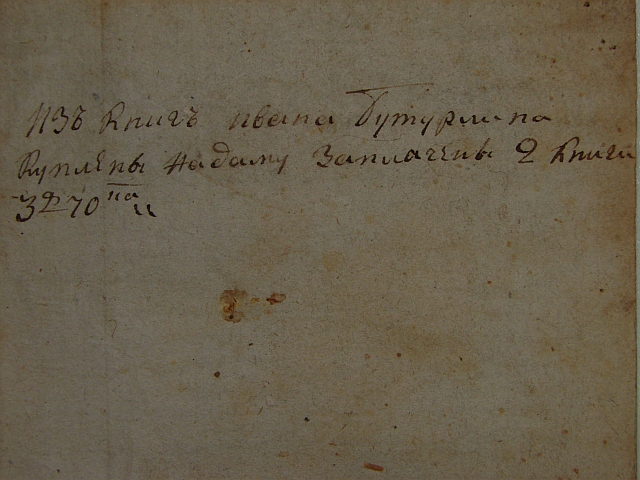 изъ книгъ ивана Бутурлина
куплены надому заплачены 2 книги
3 р 70 ко